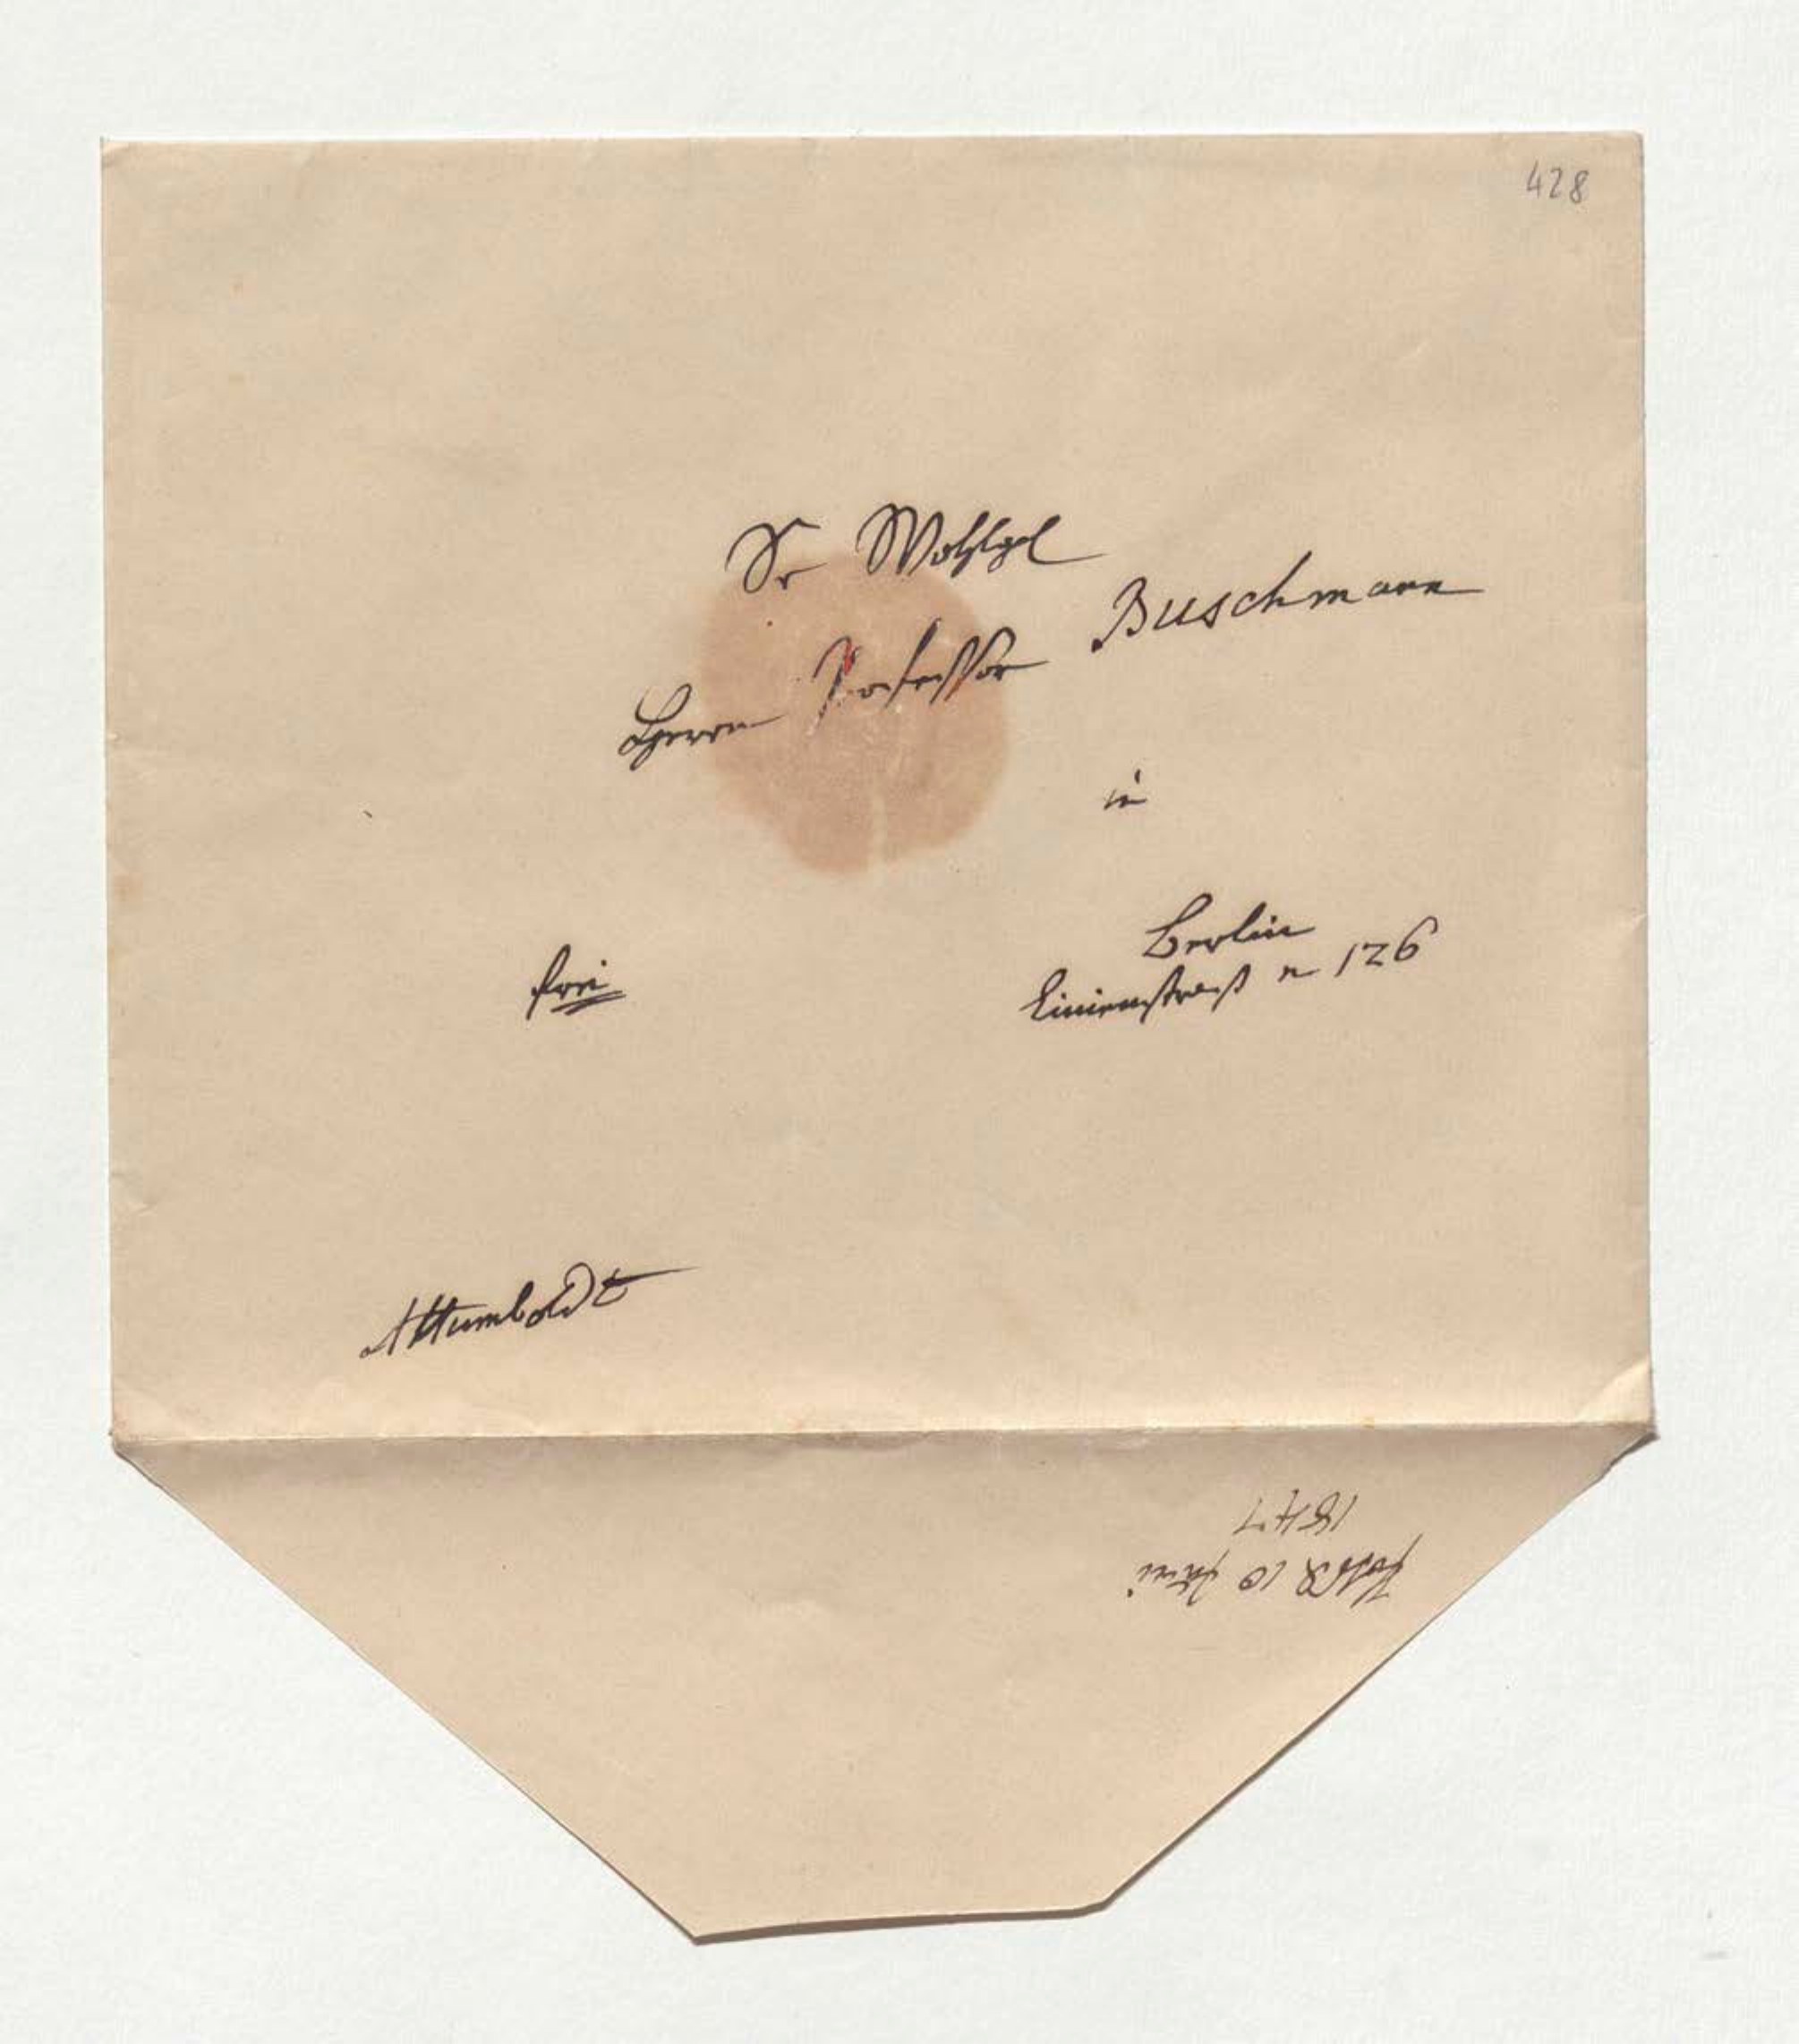 428
Sr Wohlgel
Herrn Professor Buschmann
in
Berlin
Linienstraß n 126
frei
AHumboldt
10 Juni
1847